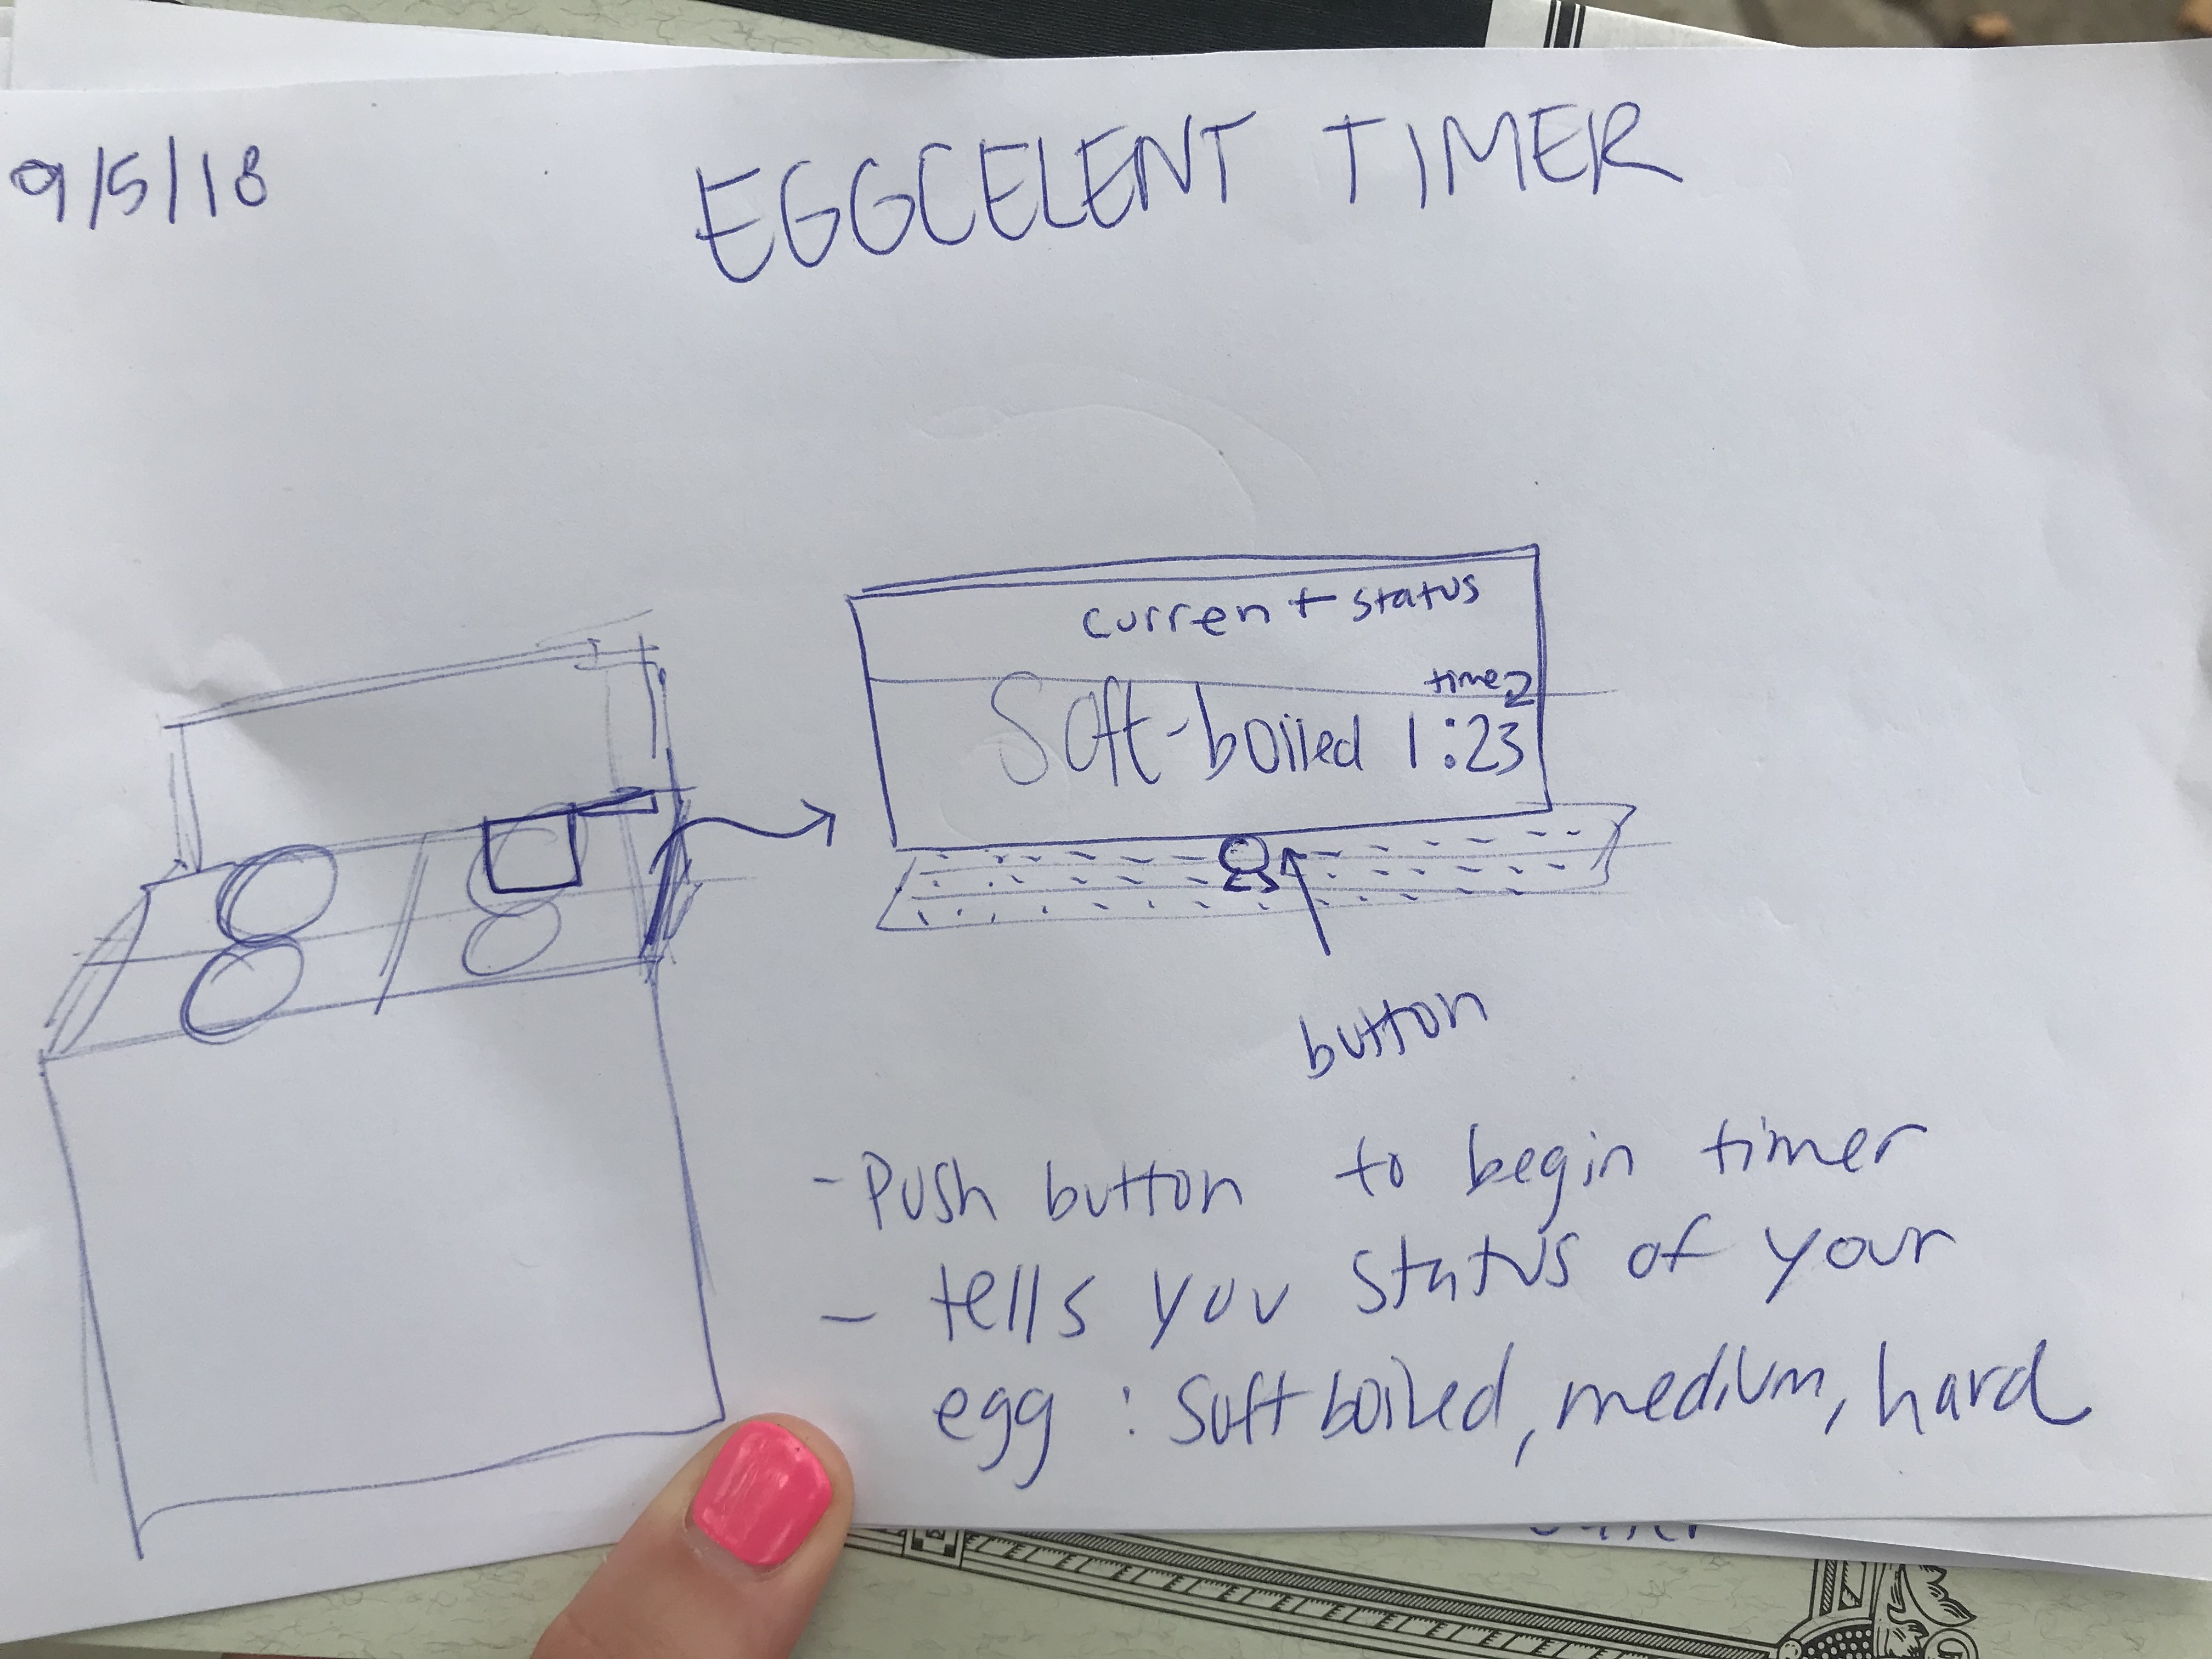 9/5/18
EGGCELENT TIMER
current status
time
Soft-boiled 1:23
button
- Push button to begin timer
- tells you status of your
egg : Soft boiled, medium, hard